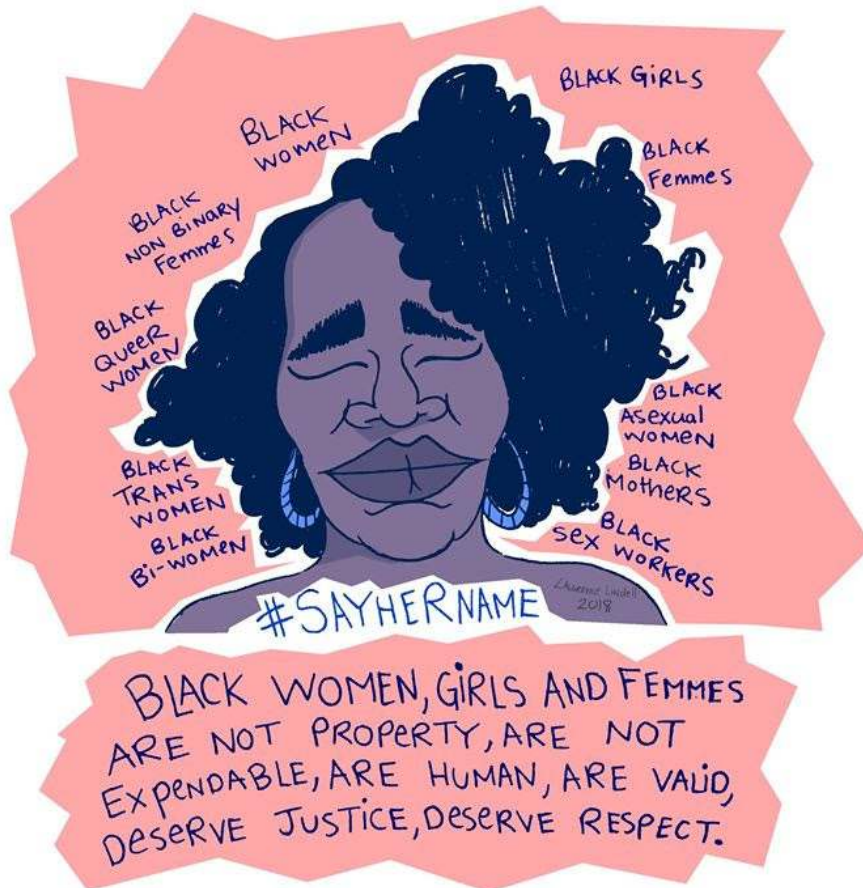 BLACK GiRLS
BLACK
WOMEN
BLACK
Femmes
BLACK
NON BiNARY
Femmes
BLACK
QUEER
WOMEN
BLACK
Asexual
WOMEN
BLACK
TRANS
WOMEN
BLACK
MOTHERS
BLACK
Bi-WOMEN
BLACK
Sex WORKERS
#SAYHERNAME
Lindell
2018
BLACK WOMEN, GiRLS AND FEMMES
ARE NOT PROPERTY, ARE NOT
EXPENDABLE, ARE HUMAN, ARE VALiD,
DESERVE JUSTiCE, DESERVE RESPECT.